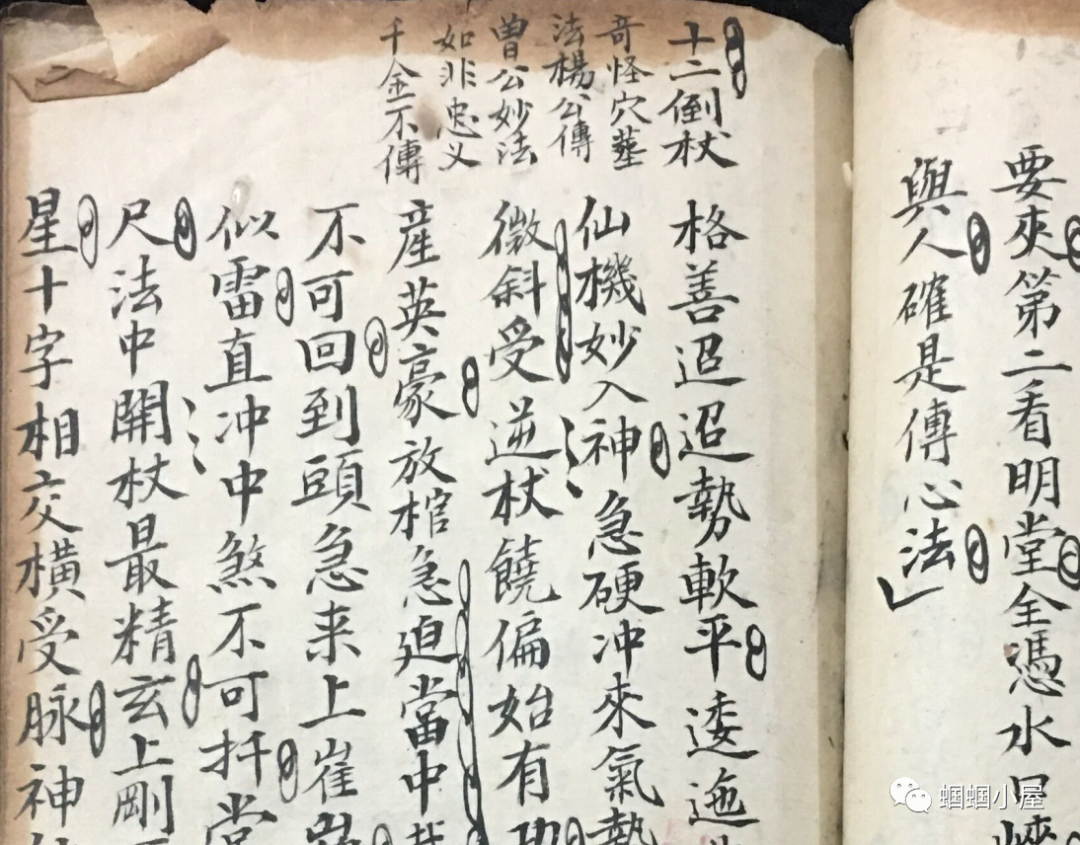 要夾第二看明堂全憑水口峽
與人確是傳心法
十二倒杖
奇怪穴塟
法楊公傳
曽公妙法
如非忠义
千金不傳
格善迢迢勢軟平逶迤
仙機妙入神急硬冲來氣勢
微斜受逆杖饒偏始有功
産英豪放棺急迫當中
不可回到頭急来上崔
似雷直冲中煞不可扦當
尺法中開杖最精玄上剛
星十字相交横受脉神
蝈蝈小屋